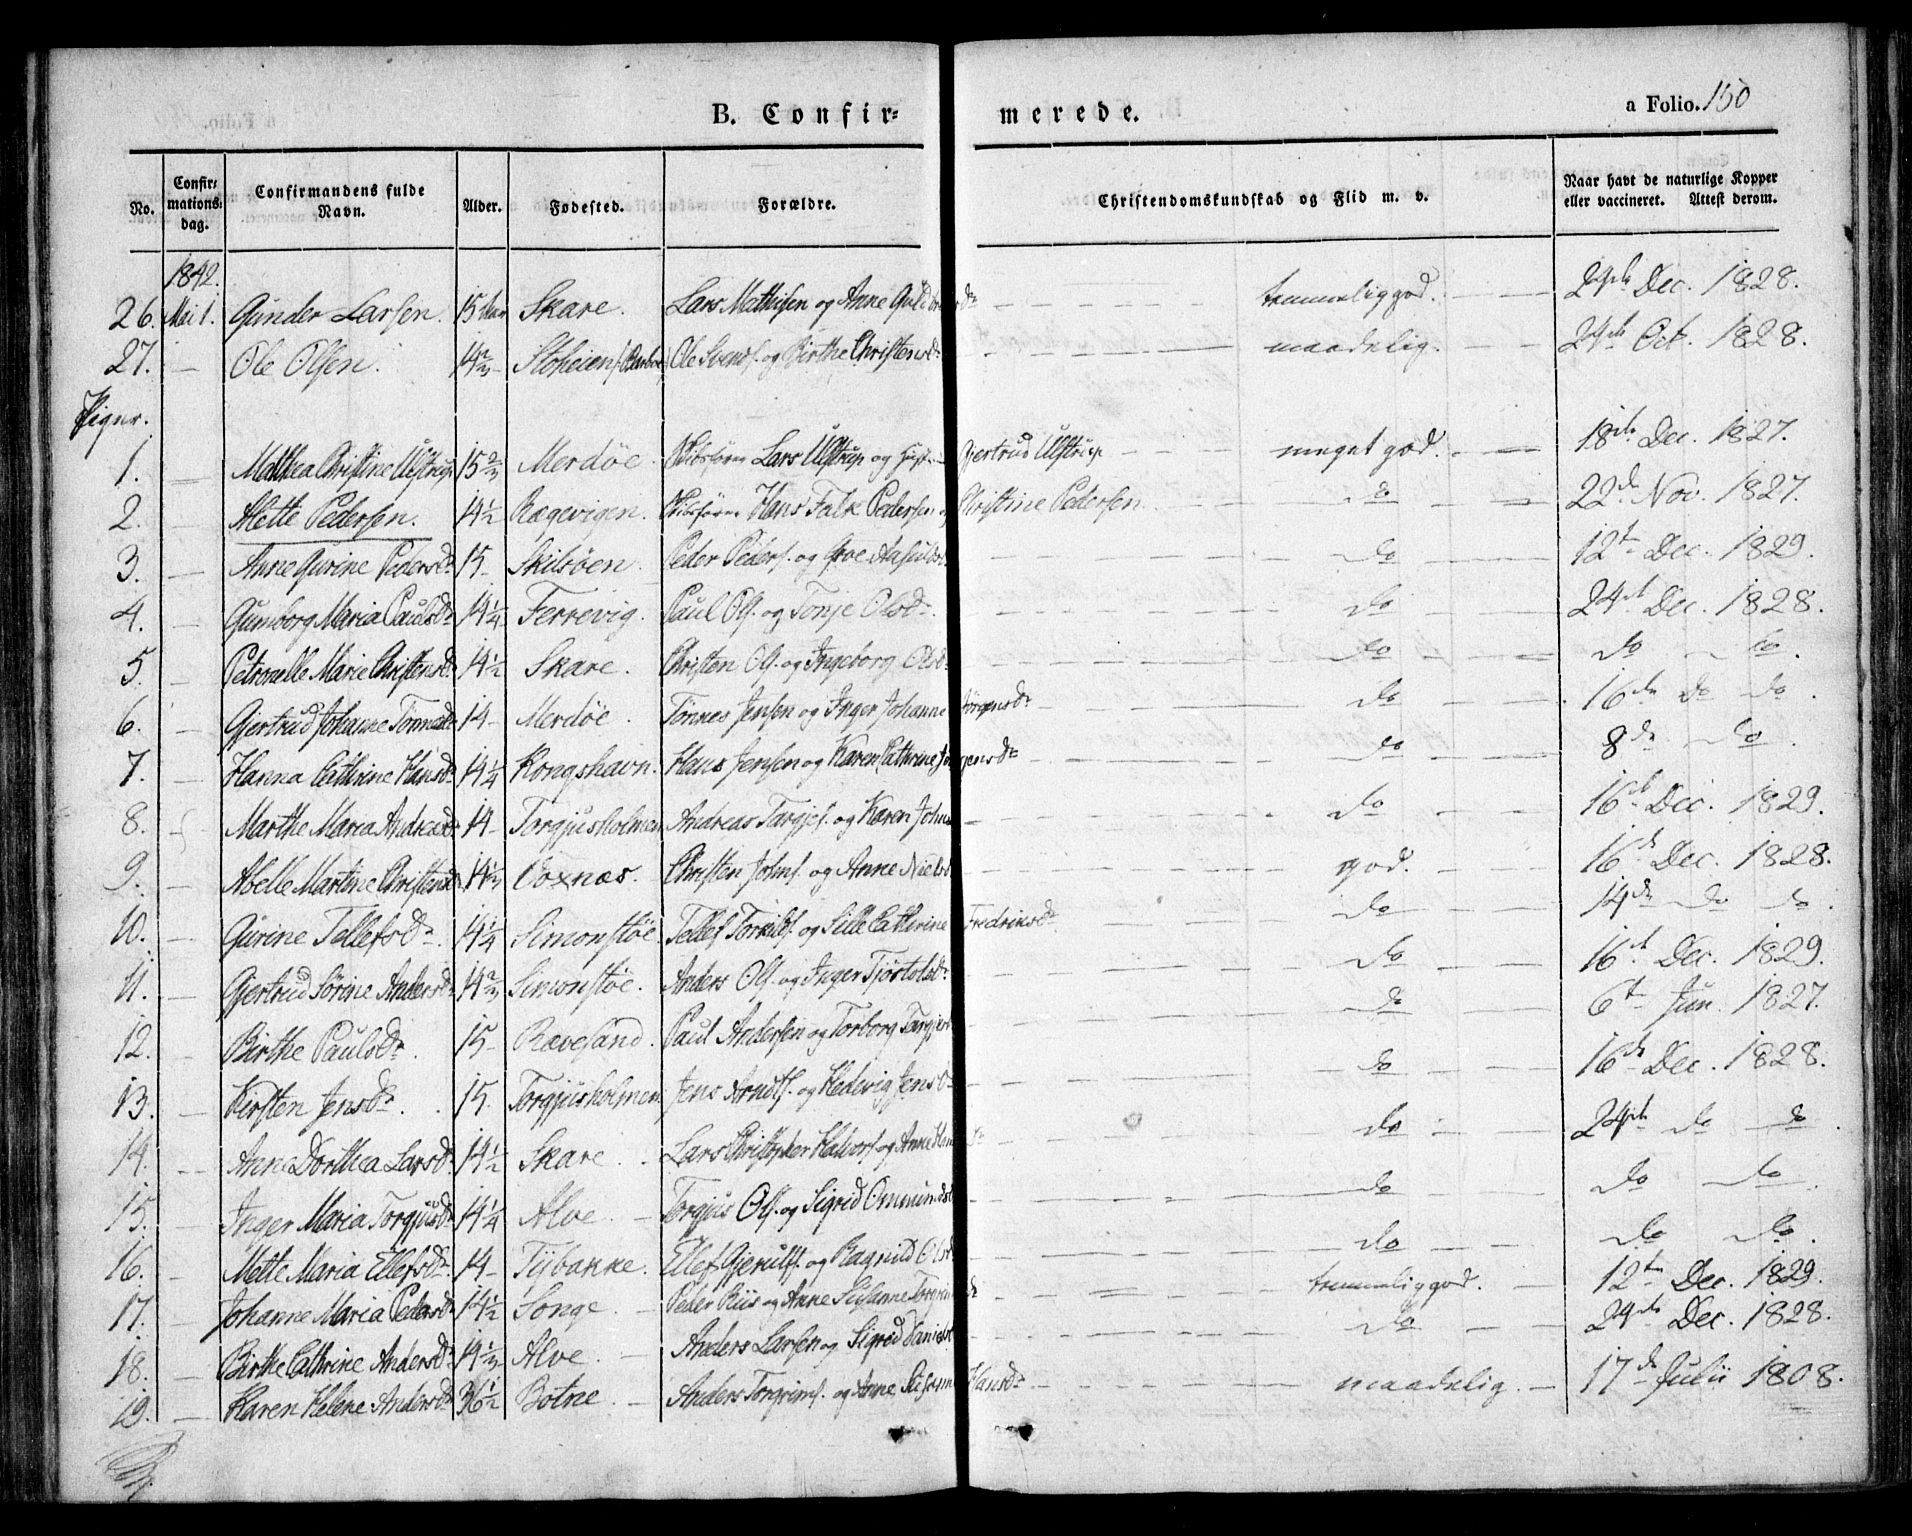 B. Confirmerede. a Folio. 150
No. Confirmationsdag. Confirmandens fulde Navn. Alder. Fødested. Forældre. Christendomskundskab og Flid m. v. Naar havt de naturlige Kopper eller vaccineret. Attest derom.
1842.
26. Mai 1. Gunder Larsen. 15 Skare. Lars Mathisen og Anne temmelig god. 24de Dec. 1828.
27. — Ole Olsen. 14 2/3 Stoheien Ole Svends. og Birthe Christensdr maadelig. 24de Oct. 1828.
Piger.
1. — Mathea Christine Ulstrup 15 2/3 Merdöe. Skibsförer Lars Ulstrup og Hust. Gjertrud Ulstrup meget god. 18de Dec. 1827.
2. — Mette Pedersen. 14 1/2 Rægevigen. Skibsförer Hans Falk Pedersen og Christine Pedersen do 22de Nov. 1827.
3. — Anne Gurine Pedersdr 15 Skilsöen Peder Peders. og do 12te Dec. 1829.
4. — Gunborg Maria Paulsdr 14 1/4 Ferrevig. Paul Ols. og Tonje Olsdr. do 24de Dec. 1828.
5. — Petronelle Marie Christensdr 14 1/2 Skare. Christen Ols. og Ingeborg Olsdr do do do.
6. — Gjertrud Johanne Tönnesdr 14 Merdöe. Tönnes Jensen og Inger Johanne Jörgensdr do 16de do do.
7. — Hanna Cathrine Hansdr 14 1/4 Kongshavn. Hans Jensen og Karen Cathrine Jörgensdr do 8de do.
8. — Marthe Maria Andreasdr 14 Torgjusholmen Andreas Targjs. og Karen Johns do 16de Dec. 1829.
9. — Abelle Martine Christensdr 14 1/3 Voxnæs. Christen Johns. og Anne Nielsd god. 16de Dec. 1828.
10. — Gurine Tellefsdr. 14 1/4 Simonstöe. Tellef Torkilds. og Sille Cathrine Fredriksdr do 14de do do.
11. — Gjertrud Sörine Andersdr 14 2/3 Simonstöe. Anders Ols. og Inger Tjöstolsdr do 16de Dec. 1829.
12. — Birthe Paulsdr. 15 Rævesand. Paul Andersen og Torborg Targjusd do 6te Jun. 1827.
13. — Kirsten Jensdr. 15. Torgjusholmen Jens Arndts. og Hedevig Jensdr do 16de Dec. 1828.
14. — Anne Dorthea Larsdr. 14 1/2 Skare. Lars Christopher Halvors. og Anne Hansdr do 24de do do.
15. — Inger Maria Torgjusdr 14 1/4 Alve. Torgjus Ols. og Sigrid Ommundsd do do do
16. — Mette Maria Ellefsdr. 14 Tybakke. Ellef Gjeruls. og Ragnild Olsd do do do.
17. — Johanne Maria Pedersdr 14 1/2 Songe. Peder Riis og Anne Susanne temmelig god. 12te Dec. 1829.
18. — Birthe Cathrine Andersdr 14 1/3 Alve. Anders Larsen og Sigrid Danielsd do 24de Dec. 1828.
19. — Karen Helene Andersdr 36 1/2 Botne. Anders Torgrims. og Anne Susanne Hansdr maadelig. 17de Julii 1808.